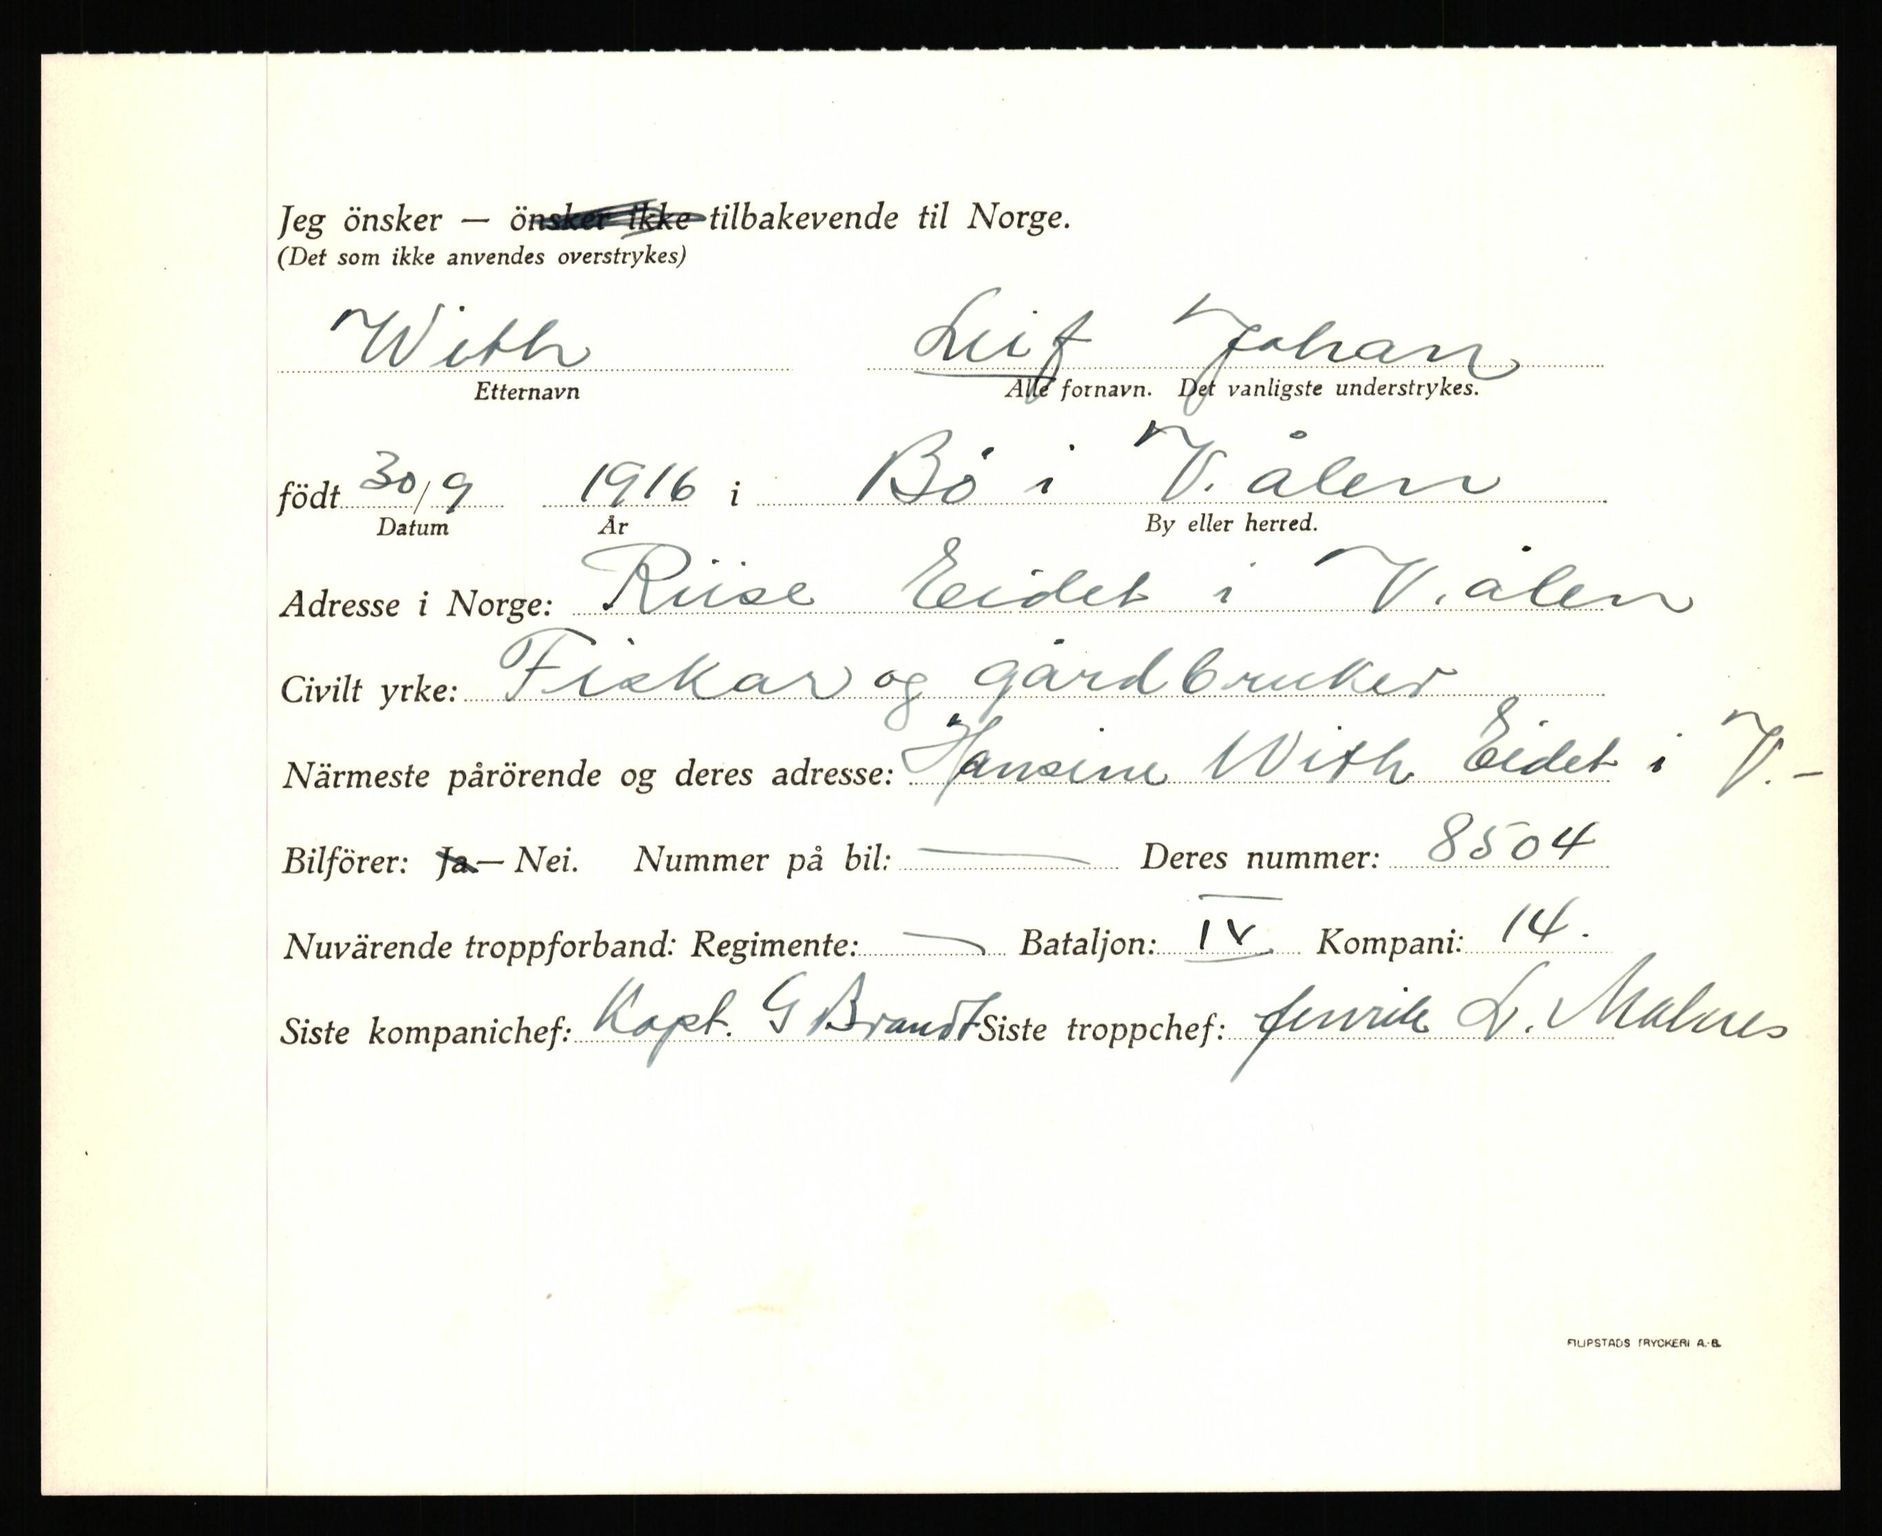 Jeg önsker — önsker ikke tilbakevende til Norge.
(Det som ikke anvendes overstrykes)
With Leif Johan
Etternavn Alle fornavn. Det vanligste understrykes.
födt 30/9 1916 i Bö i V.ålen
Datum År By eller herred.
Adresse i Norge: Riise Eidet i V.ålen
Civilt yrke: Fiskar og gårdbruker
Närmeste pårörende og deres adresse: Hansine With Eidet i V.-
Bilförer: Ja — Nei. Nummer på bil: — Deres nummer: 8504
Nuvärende troppforband: Regimente: — Bataljon: IV Kompani: 14.
Siste kompanichef: Kapt. G Brandt Siste troppchef: fenrik L. Malnes
FILIPSTADS TRYCKERI A.-B.